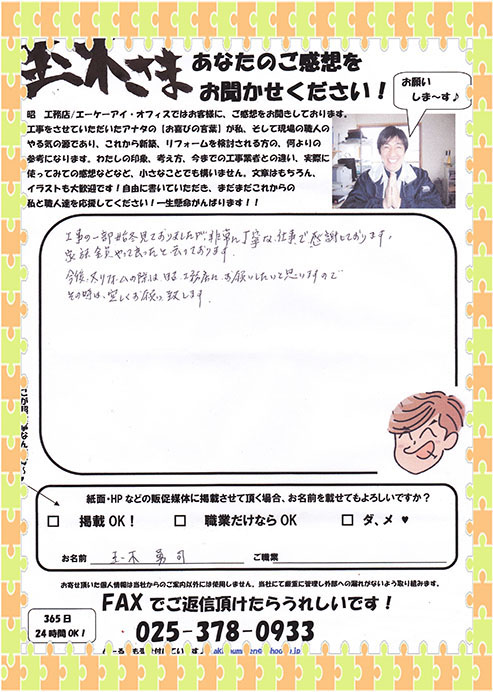 玉木さま
あなたのご感想を
お聞かせください！
お願い
しま～す♪
昭　工務店/エーケーアイ・オフィスではお客様に、ご感想をお聞きしております。
工事をさせていただいたアナタの【お喜びの言葉】が私、そして現場の職人の
やる気の源であり、これから新築、リフォームを検討される方の、何よりの
参考になります。わたしの印象、考え方、今までの工事業者との違い、実際に
使ってみての感想などなど、小さなことでも構いません。文章はもちろん、
イラストも大歓迎です！自由に書いていただき、まだまだこれからの
私と職人達を応援してください！一生懸命がんばります！！
工事の一部始終見ておりましたが、非常に丁寧な仕事で感謝しております。
家族全員やって良かったと云っております。
今後、又リフォームの際は昭工務店にお願いしたいと思いますので
その時は、宜しくお願い致します。
紙面・HPなどの販促媒体に掲載させて頂く場合、お名前を載せてもよろしいですか？
□　掲載OK！　□　職業だけならOK　□　ダ、メ ♥
お名前　玉木　勇司　ご職業
お寄せ頂いた個人情報は当社からのご案内以外には使用しません。当社にて厳重に管理し外部への漏れがないよう取り組みます。
FAXでご返信頂けたらうれしいです！
365日
24時間OK！
025-378-0933